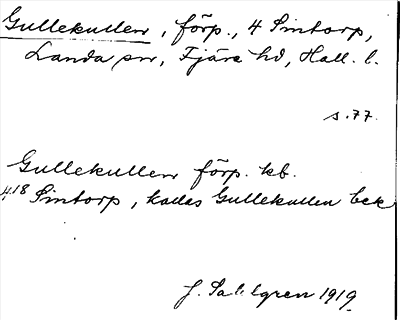 Gullekullen, förp., 4 Sintorp,
Landa sn, Fjäre hd, Hall. l.
s. 77.
Gullekullen förp. kb.
4 18 Sintorp, kallas Gullekullen bek
J. Sahlgren 1919.